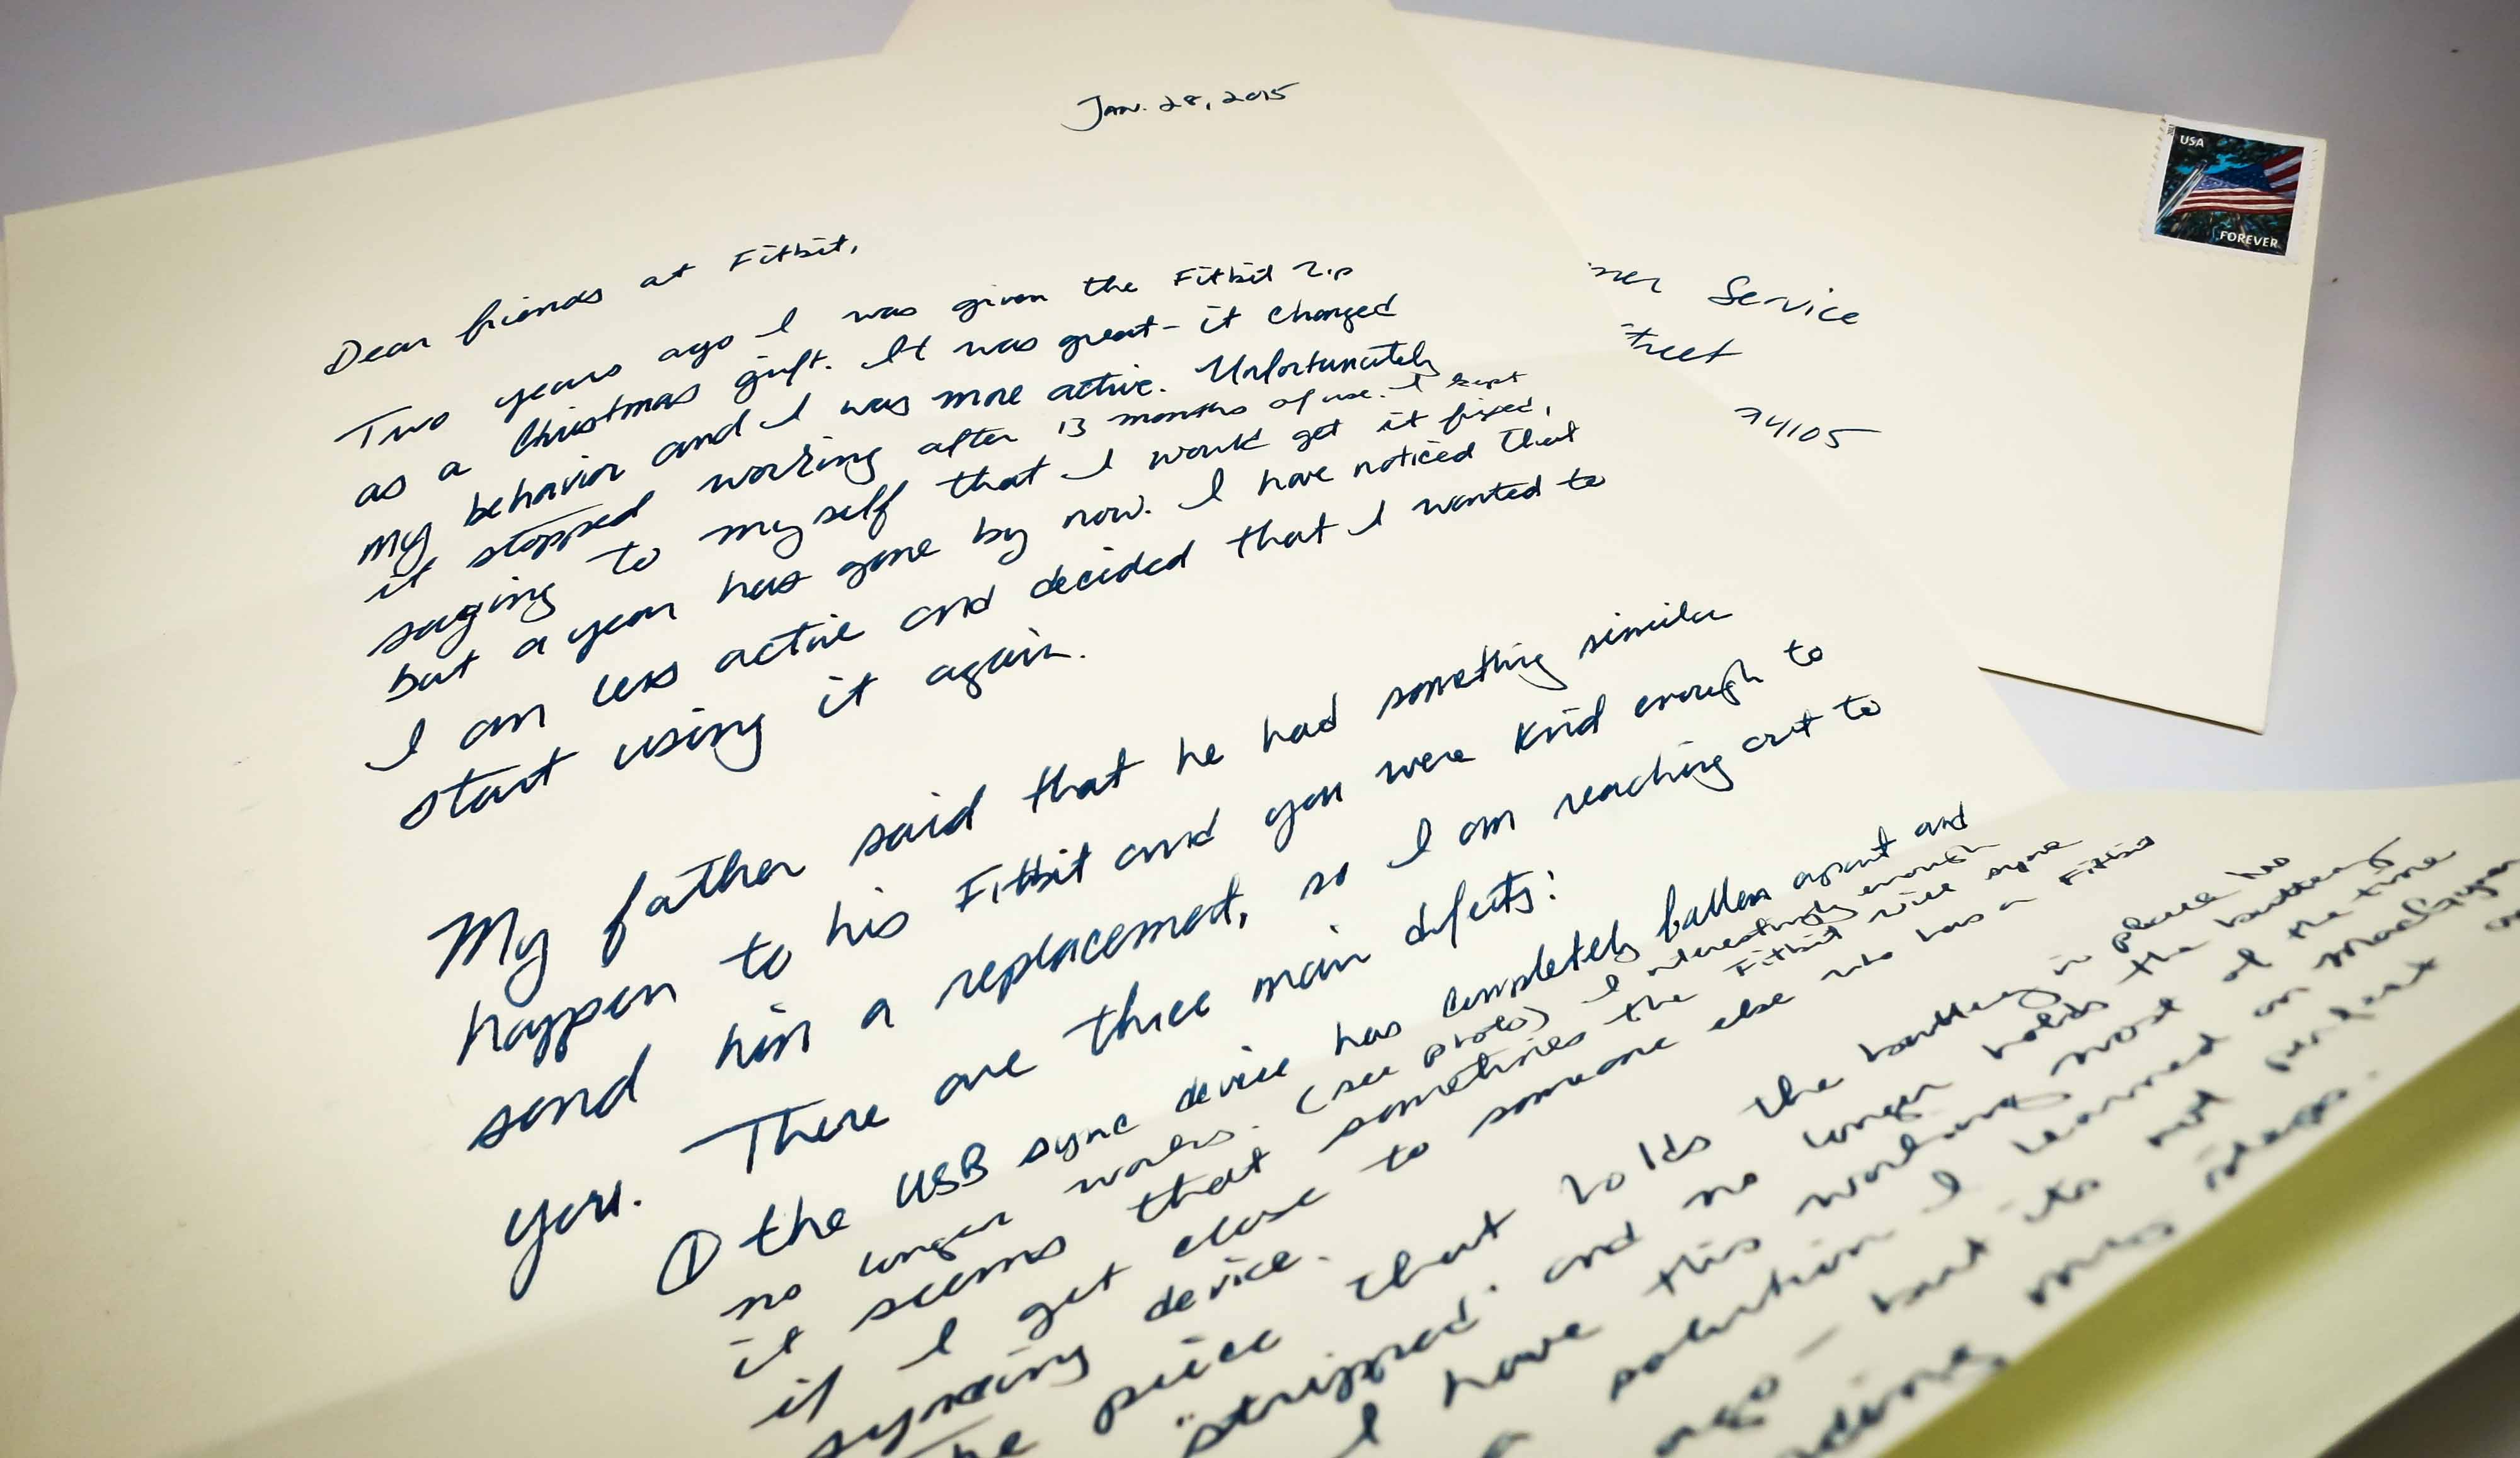 Jan. 28, 2015
Dear friends at Fitbit,
Two years ago I was given the Fitbit Zip
as a Christmas gift. It was great - it changed
my behavior and I was more active. Unfortunately
it stopped working after 13 months of use. I kept
saying to myself that I would get it fixed,
but a year has gone by now. I have noticed that
I am less active and decided that I wanted to
start using it again.
My father said that he had something similar
happen to his Fitbit and you were kind enough to
send him a replacement, so I am reaching out to
you. There are three main defects:
① the USB sync device has completely fallen apart and
no longer works. (see photo) Interestingly enough
it seems that sometimes the Fitbit will sync
if I get close to someone else who has a Fitbit
syncing device.
the piece that holds the battery in place has
"stripped" and no longer holds the battery
I have this working most of the time
a solution I learned on
ago - but its not perfect
USA
FOREVER
Service
94105